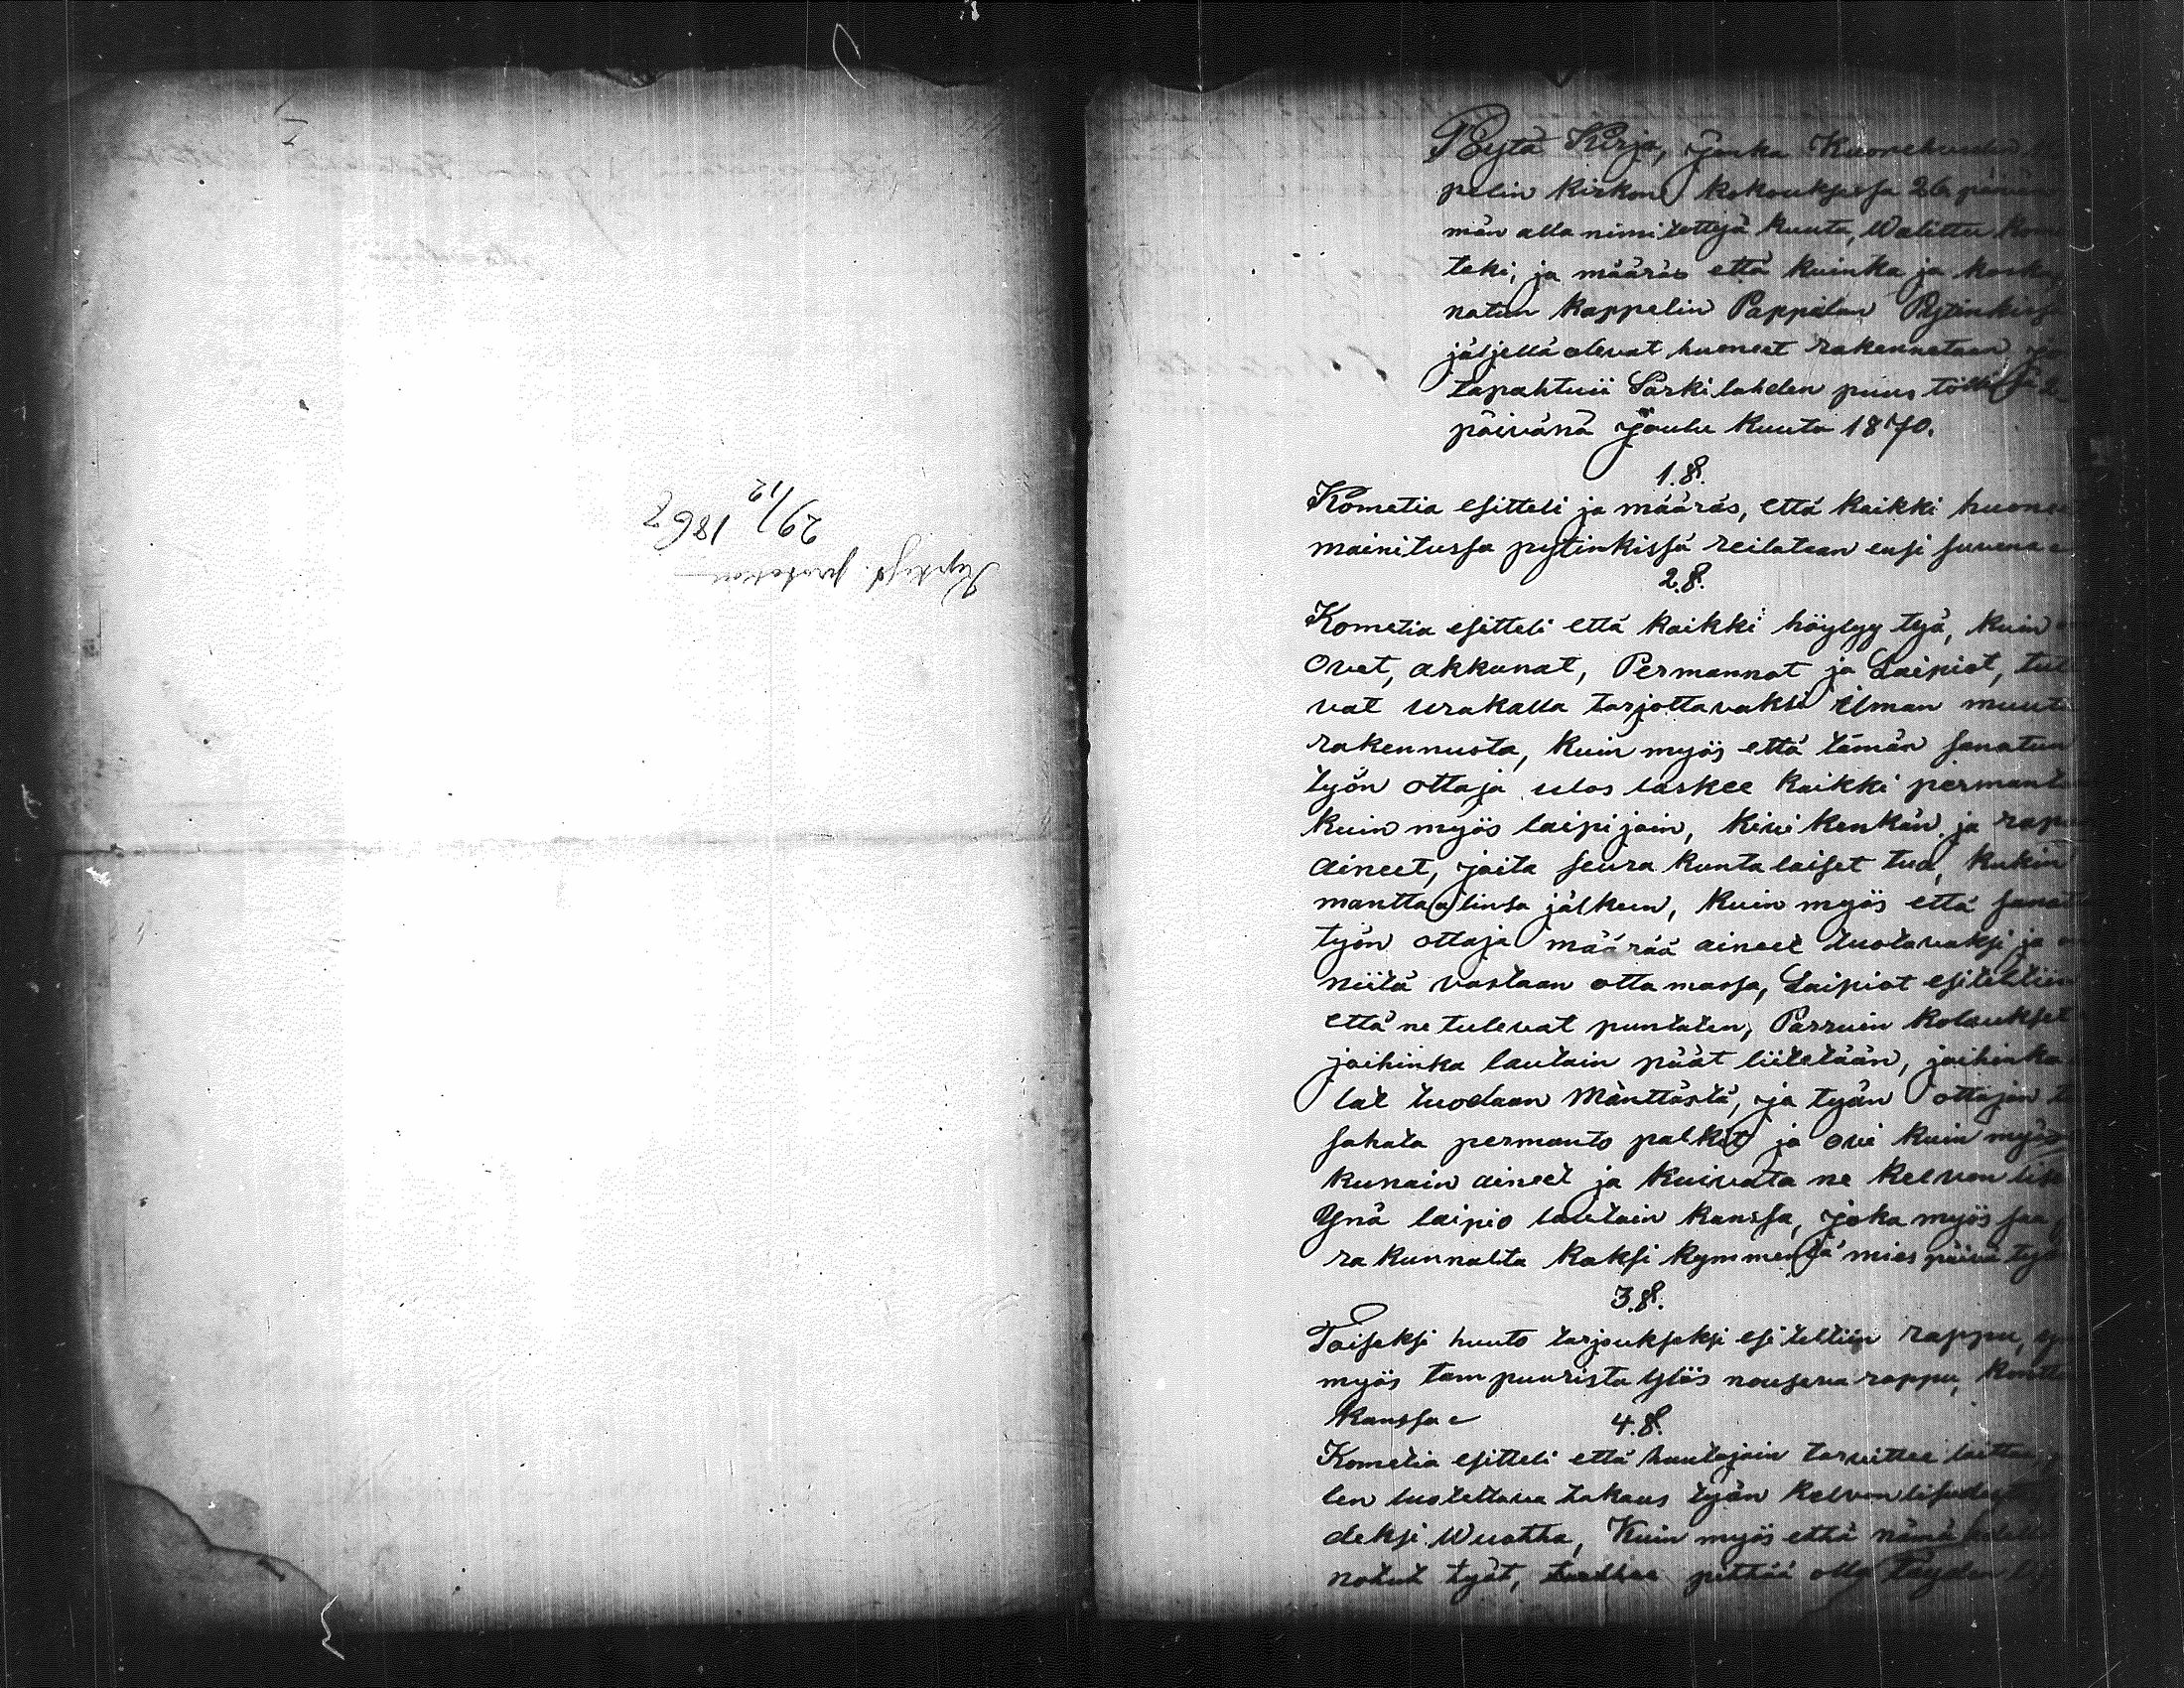 29/12 1867
Pöytä Kirja, jonka Kuorehveden
pelin kirkon kokouksessa 26 päivän
män alla nimitettyä kuuta, Walittu Kom
teki, ja määräs että kuinka ja koska,
natun kappelin Pappilan Pytinkissä
jäljellä olevat huoneet rakennetaan jo
tapahtui Särkilahden puus töllissä 2
päivänä Joulu kuuta 1870.
1.§.
Kometia esitteli ja määräs, että kaikki huoneet
mainitussa pytinkissä reilataan ensi suvena
2.§.
Kometia esitteli että kaikki höylyy työ, kuin
Ovet, akkunat, Permannot ja Laipiot, tule
vat urakalla tarjottavaksi ilman muuta
rakennusta, kuin myös että tämän sanatun
työn ottaja ulos laskee kaikki permanto
kuin myös laipijoin, kivi kenkän ja rapu
aineet, joita seura kuntalaiset tua, kukin
manttaalinsa jälkeen, kuin myös että sanat
työn ottaja määrää aineet tuotavaksi ja on
niitä vastaan ottamassa, Laipiot esiteltiin
että ne tulevat puntaten, Parruin kolaukset
joihinka lautain päät liitetään, joihinka
lat tuodaan Mänttästä, ja työn ottajan t
sahata permanto palkit ja ovi kuin myös
kunain aineet ja kuivata ne kelvon lise
Ynä laipio lautain kanssa, joka myös saa
ra kunnalta kaksi kymmentä mies päivä työ
3.§.
Toiseksi huuto tarjoukseksi esiteltiin rappu,
myös tampuurista ylös nouseva rappu, kontto
kanssa
4.§.
Kometia esitteli että huutajain tarvittee laittaa
len luotettava takaus työn kelvon lisudesta
deksi Wuotta, Kuin myös että nämä edellä
notut työt, tuellee pittää olla Täyden